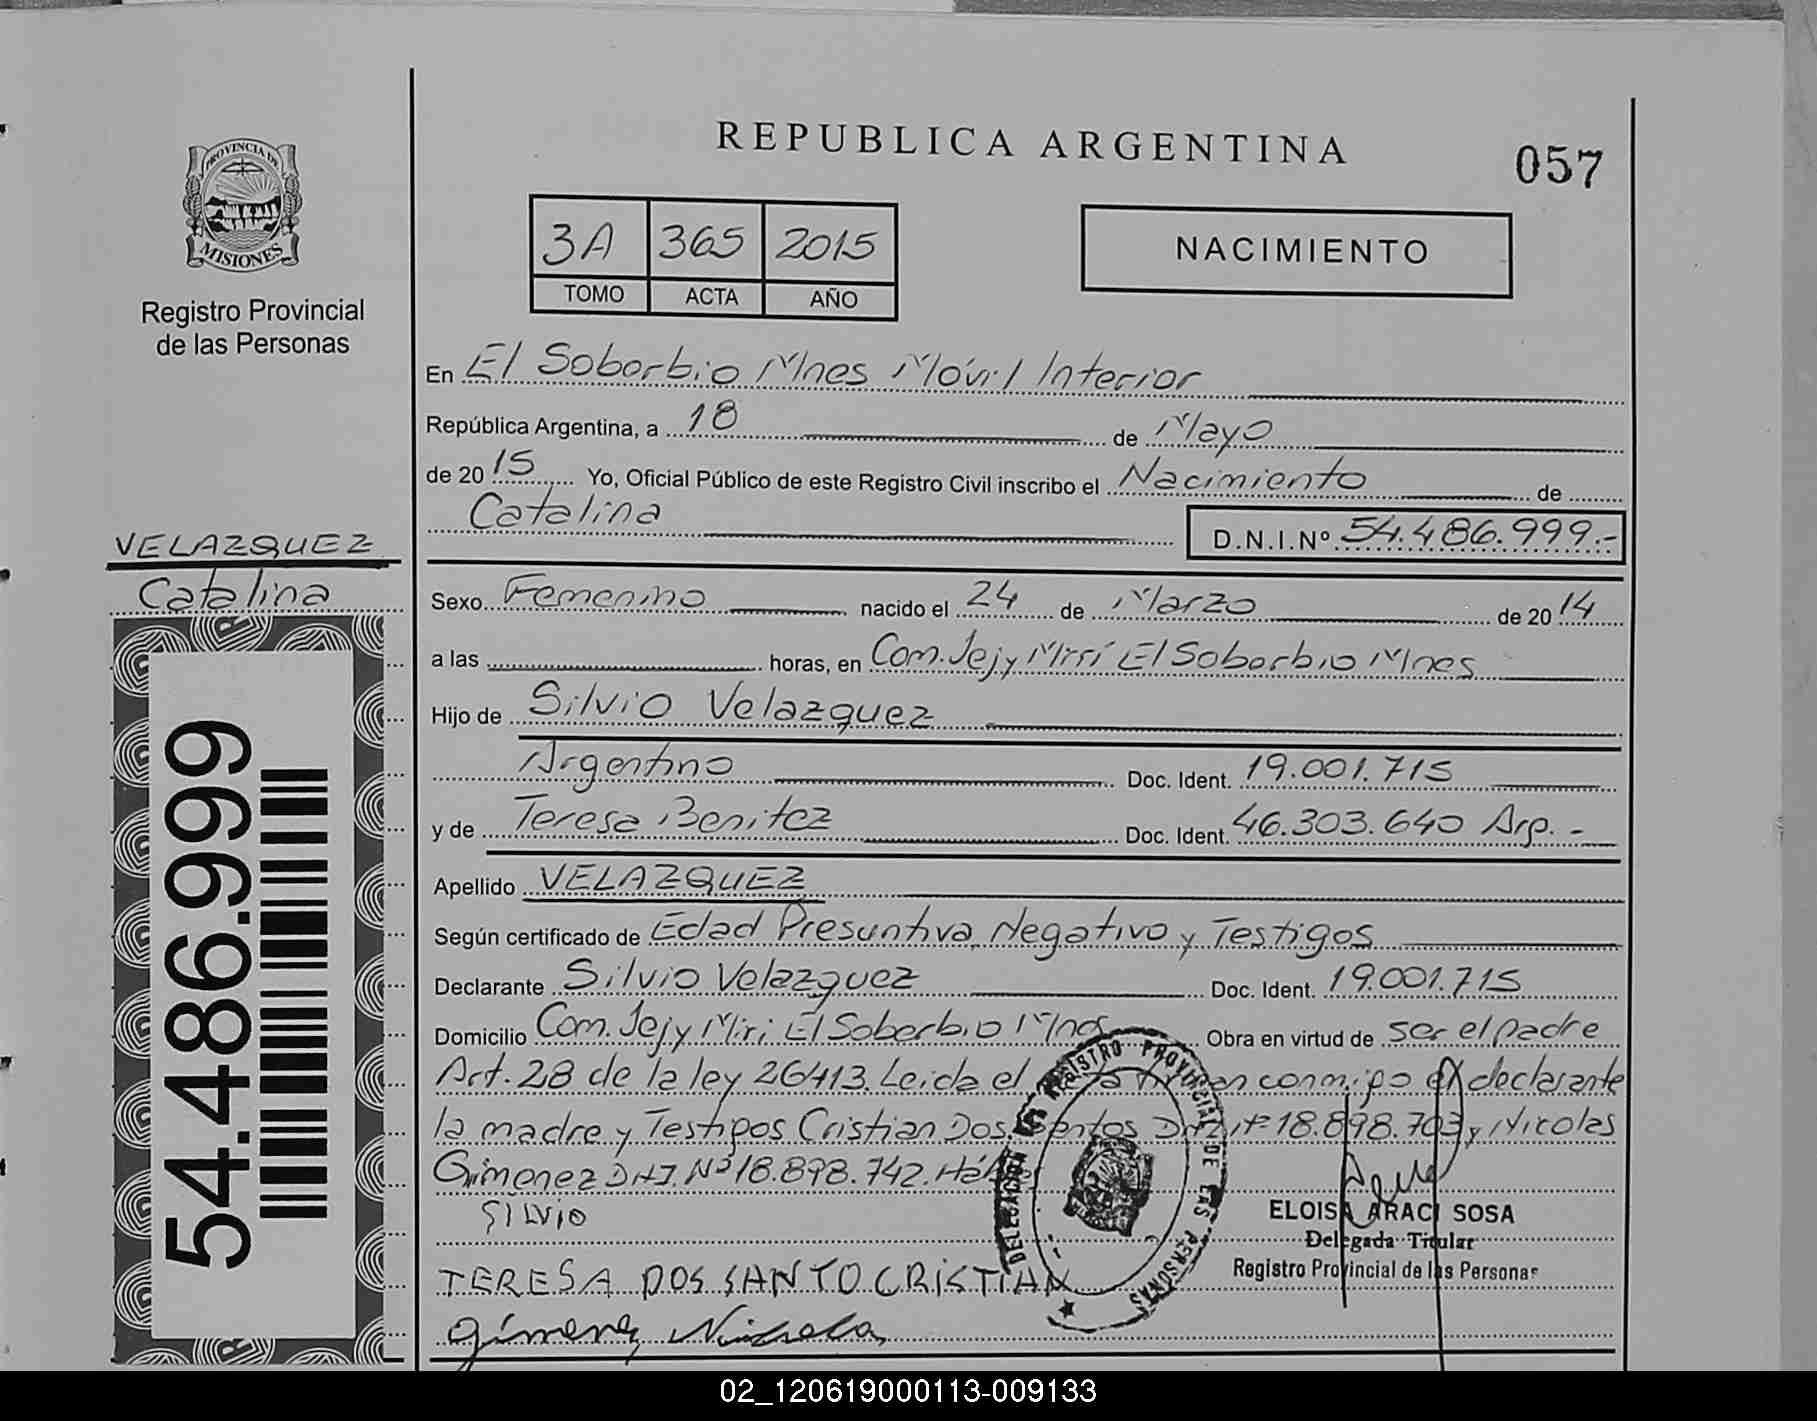 PROVINCIA DE
MISIONES
Registro Provincial
de las Personas
REPUBLICA ARGENTINA
057
3A 365 2015
TOMO ACTA AÑO
NACIMIENTO
En El Soberbio Mnes Móvil Interior
República Argentina, a 18 de Mayo
de 2015 Yo, Oficial Público de este Registro Civil inscribo el Nacimiento de
Catalina D.N.I.Nº 54.486.999.-
VELAZQUEZ
Catalina
54.486.999
Sexo Femenino nacido el 24 de Marzo de 2014
a las horas, en Com. Jejy Mirí El Soberbio Mnes
Hijo de Silvio Velazquez
Argentino Doc. Ident. 19.001.715
y de Teresa Benitez Doc. Ident. 46.303.640 Arg. -
Apellido VELAZQUEZ
Según certificado de Edad Presuntiva, Negativo y Testigos
Declarante Silvio Velazquez Doc. Ident. 19.001.715
Domicilio Com. Jejy Miri El Soberbio Mnes Obra en virtud de ser el padre
Art. 28 de la ley 26413. Leida el conmigo el declarante
la madre y Testigos Cristian Dos Santos DNI Nº 18.898.703 y Nicolas
Gimenez DNI. Nº 18.898.742.
SILVIO
TERESA DOS SANTO CRISTIAN
Gimenez Nicolas
DELEGACION REGISTRO PROVINCIAL DE LAS PERSONAS
ELOISA ARACI SOSA
Delegada Titular
Registro Provincial de las Personas
02_120619000113-009133